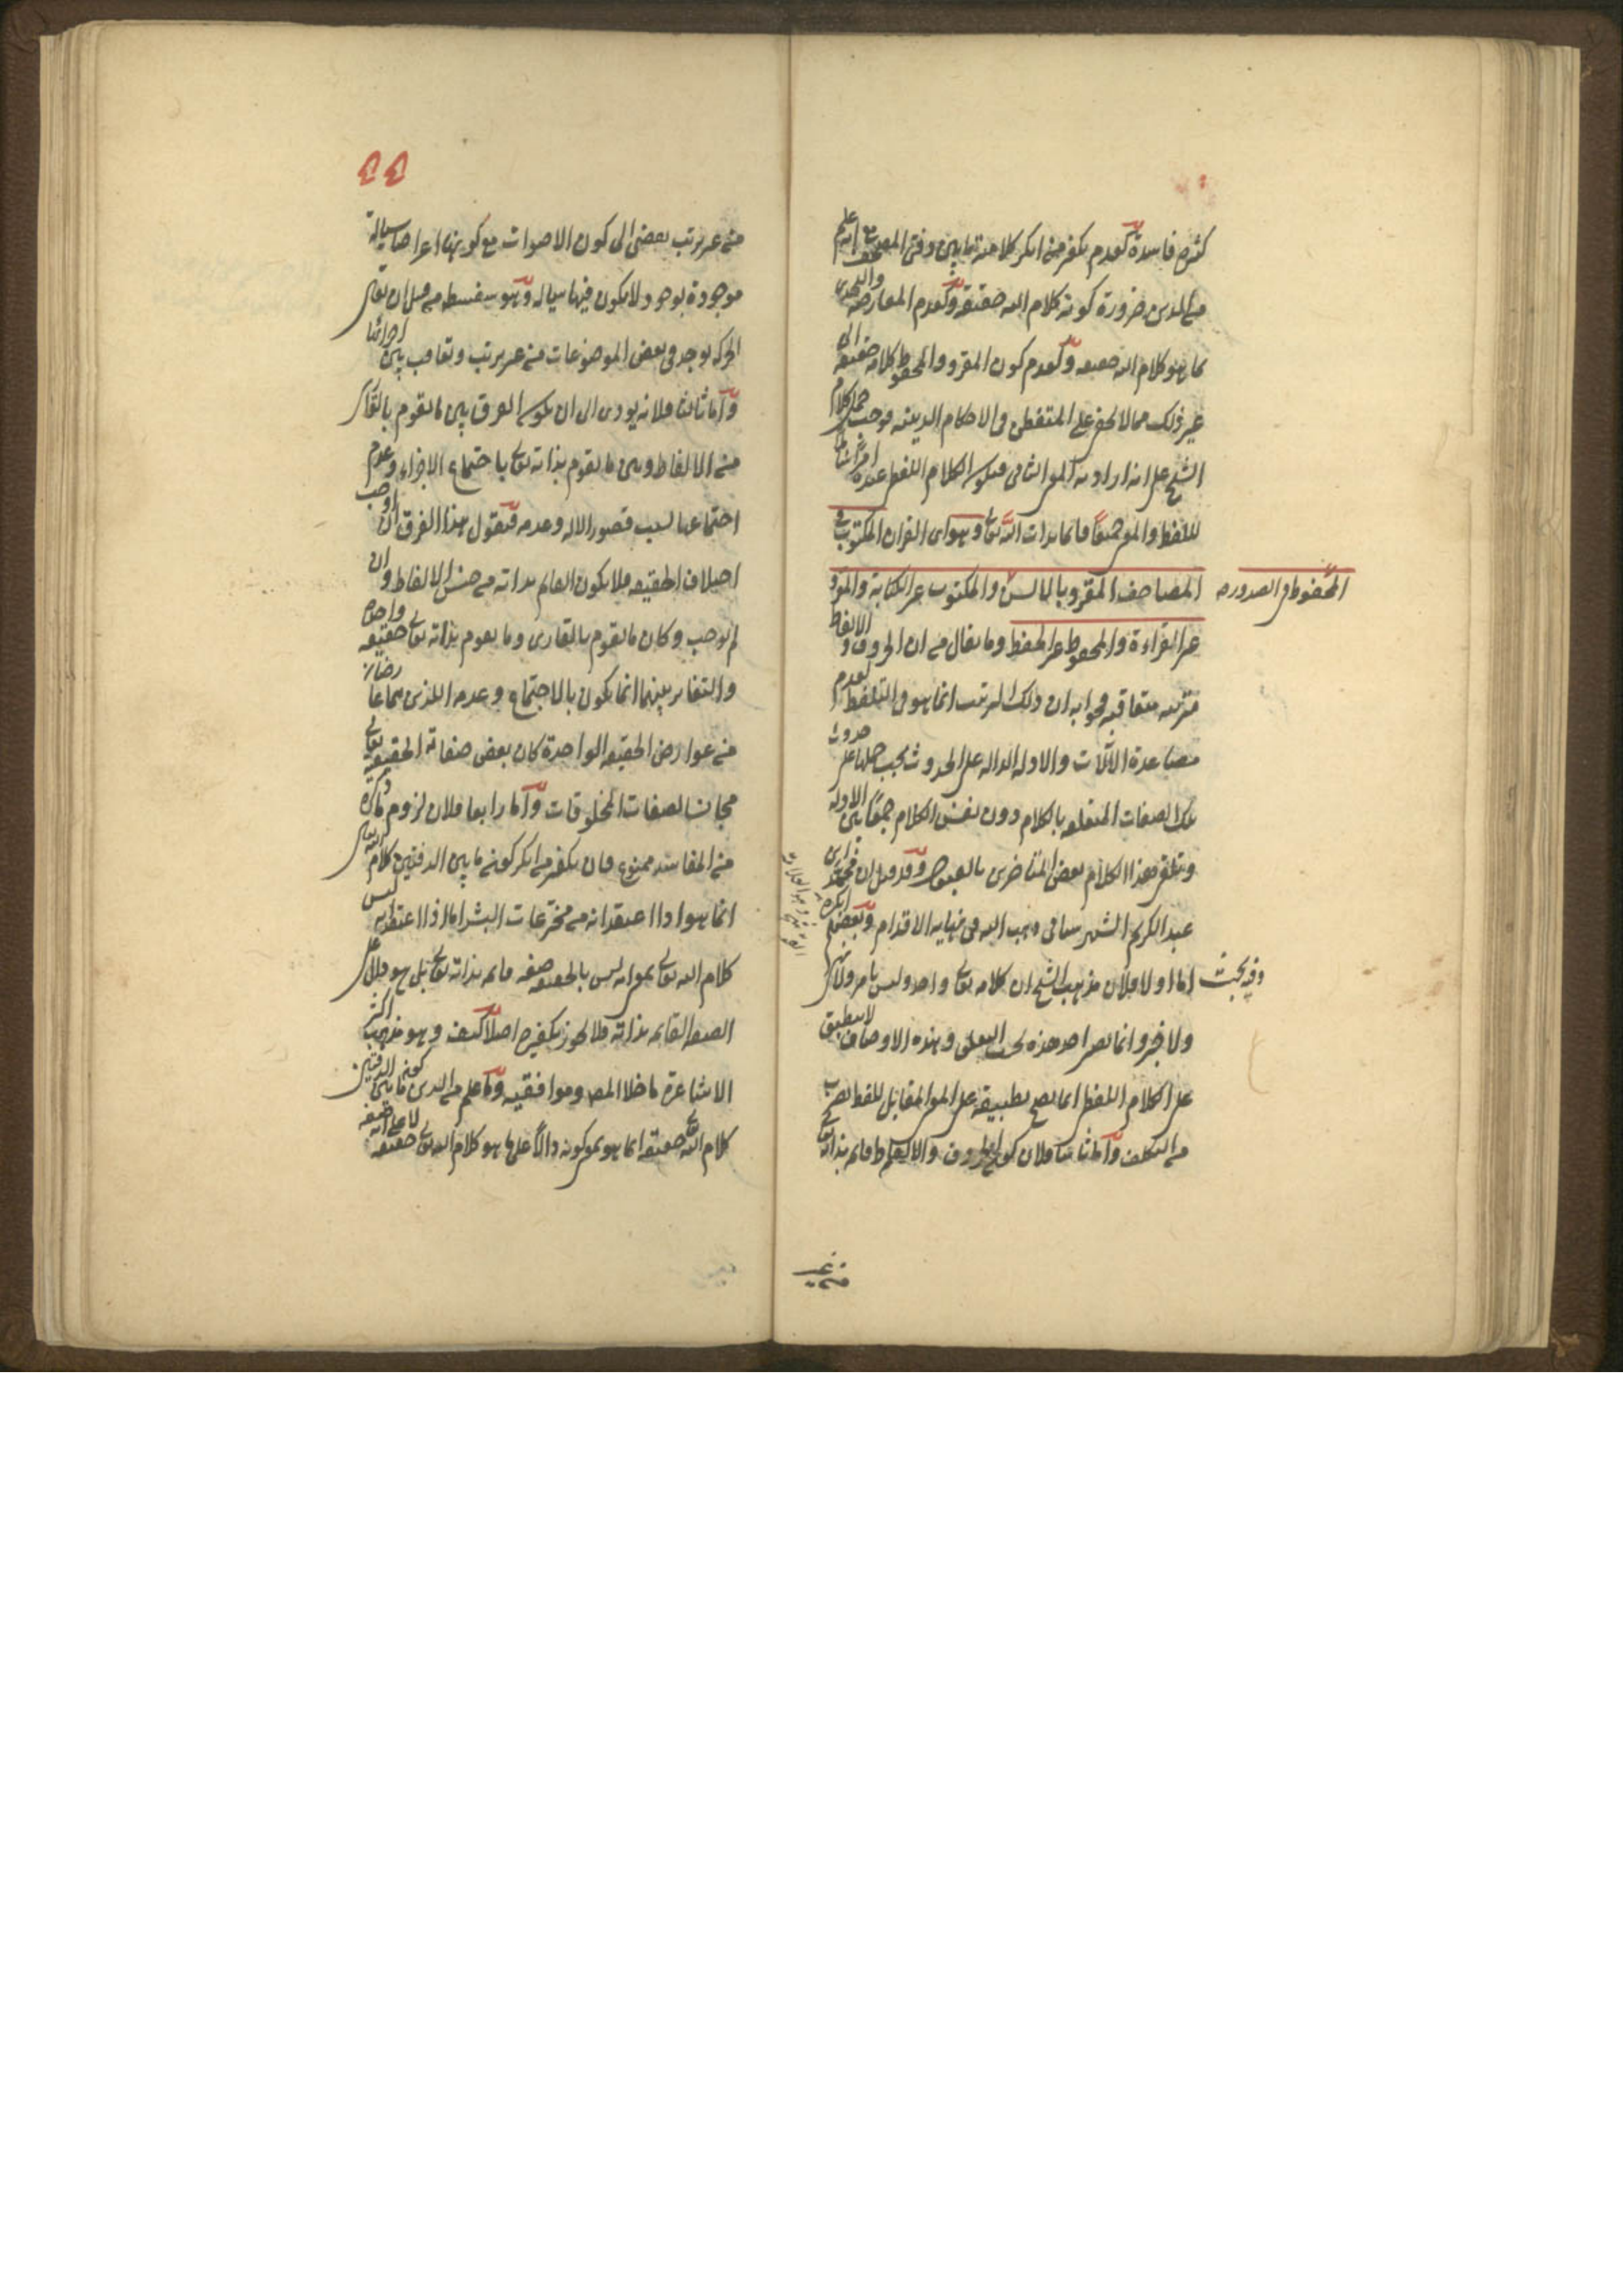 كثيرة فاسدة كعدم تكفير من انكر كلامية ما بين دفتي المصحف مع انه علم
من الدين ضرورة كونه كلام الله حقيقة وكعدم المعارضة والتحدي
بما هو كلام الله حقيقة وكعدم كون المقرو والمحفوظ كلامه حقيقة الى
غير ذلك مما لا يخفى على المتفطن في الاحكام الدينية فوجب حمل كلام
الشيخ على انه اراد به المعنى الثاني فيكون الكلام النفسي عنده امرا شاملا
للفظ والمعنى جميعا قائما بذات الله تعالى وهو اى القران المكتوب في
المصاحف المقرو بالالسن والمكتوب غير الكتابة والمقرو
المحفوظ في الصدور
غير القراءة والمحفوظ غير الحفظ وما يقال من ان الحروف والالفاظ
مترتبة متعاقبة فجوابه ان ذلك الترتب انما هو في التلفظ لعدم
مساعدة الآلات والادلة الدالة على الحدوث يجب حملها على حدوث
تلك الصفات المتعلقة بالكلام دون نفس الكلام جمعا بين الادلة
وتلقى هذا الكلام بعض المتاخرين بالقبول وقد قيل ان محمد ابن
عبد الكريم الشهرستاني ذهب اليه في نهاية الاقدام وبعضهم انكره
وفيه بحث
اما اولا فلان مذهب الشيخ ان كلامه تعالى واحد وليس بامر ولا نهي
ولا خبر وانما يصير احد هذه بحسب التعلق وهذه الاوصاف لا ينطبق
على الكلام اللفظي انما يصح تطبيقه على المعنى المقابل للفظ بضرب
من التكلف واما ثانيا فلان كون الحروف والالفاظ قائمة بذاته تعالى
من غير
من غير ترتب يفضي الى كون الاصوات مع كونها اعراضا سيالة
موجودة بوجود لا يكون فيها سيالة وهو سفسطة من قبيل ان يقال
الحركة توجد في بعض الموضوعات من غير ترتب وتعاقب بين اجزائها
واما ثالثا فلانه يودى الى ان يكون الفرق بين ما يقوم بالقارى
من الالفاظ وبين ما يقوم بذاته تعالى باجتماع الاجزاء وعدم
اجتماعها بسبب قصور الالة وعدمه فنقول هذا الفرق ان اوجب
اختلاف الحقيقة فلا يكون القائم بذاته من جنس الالفاظ وان
لم يوجب وكان ما يقوم بالقارى وما يقوم بذاته تعالى حقيقة واحدة
والتغاير بينهما انما يكون بالاجتماع وعدمه اللذين هما عارضان
من عوارض الحقيقة الواحدة كان بعض صفاته الحقيقية تعالى
مجانسا لصفات المخلوقات واما رابعا فلان لزوم ما ذكره
من المفاسد ممنوع فان تكفير من انكر كون ما بين الدفتين كلام الله تعالى
انما هو اذا اعتقد انه من مخترعات البشر اما اذا اعتقد انه ليس
كلام الله تعالى بمعنى انه ليس بالحقيقة صفة قائمة بذاته تعالى بل هو دال على
الصفة القائمة بذاته فلا يجوز تكفيره اصلا كيف وهو مذهب اكثر
الاشاعرة ما خلا المص وموافقيه وما علم من الدين كون ما بين الدفتين
كلام الله حقيقة انما هو بمعنى كونه دالا على ما هو كلام الله تعالى حقيقة لا على انه صفة